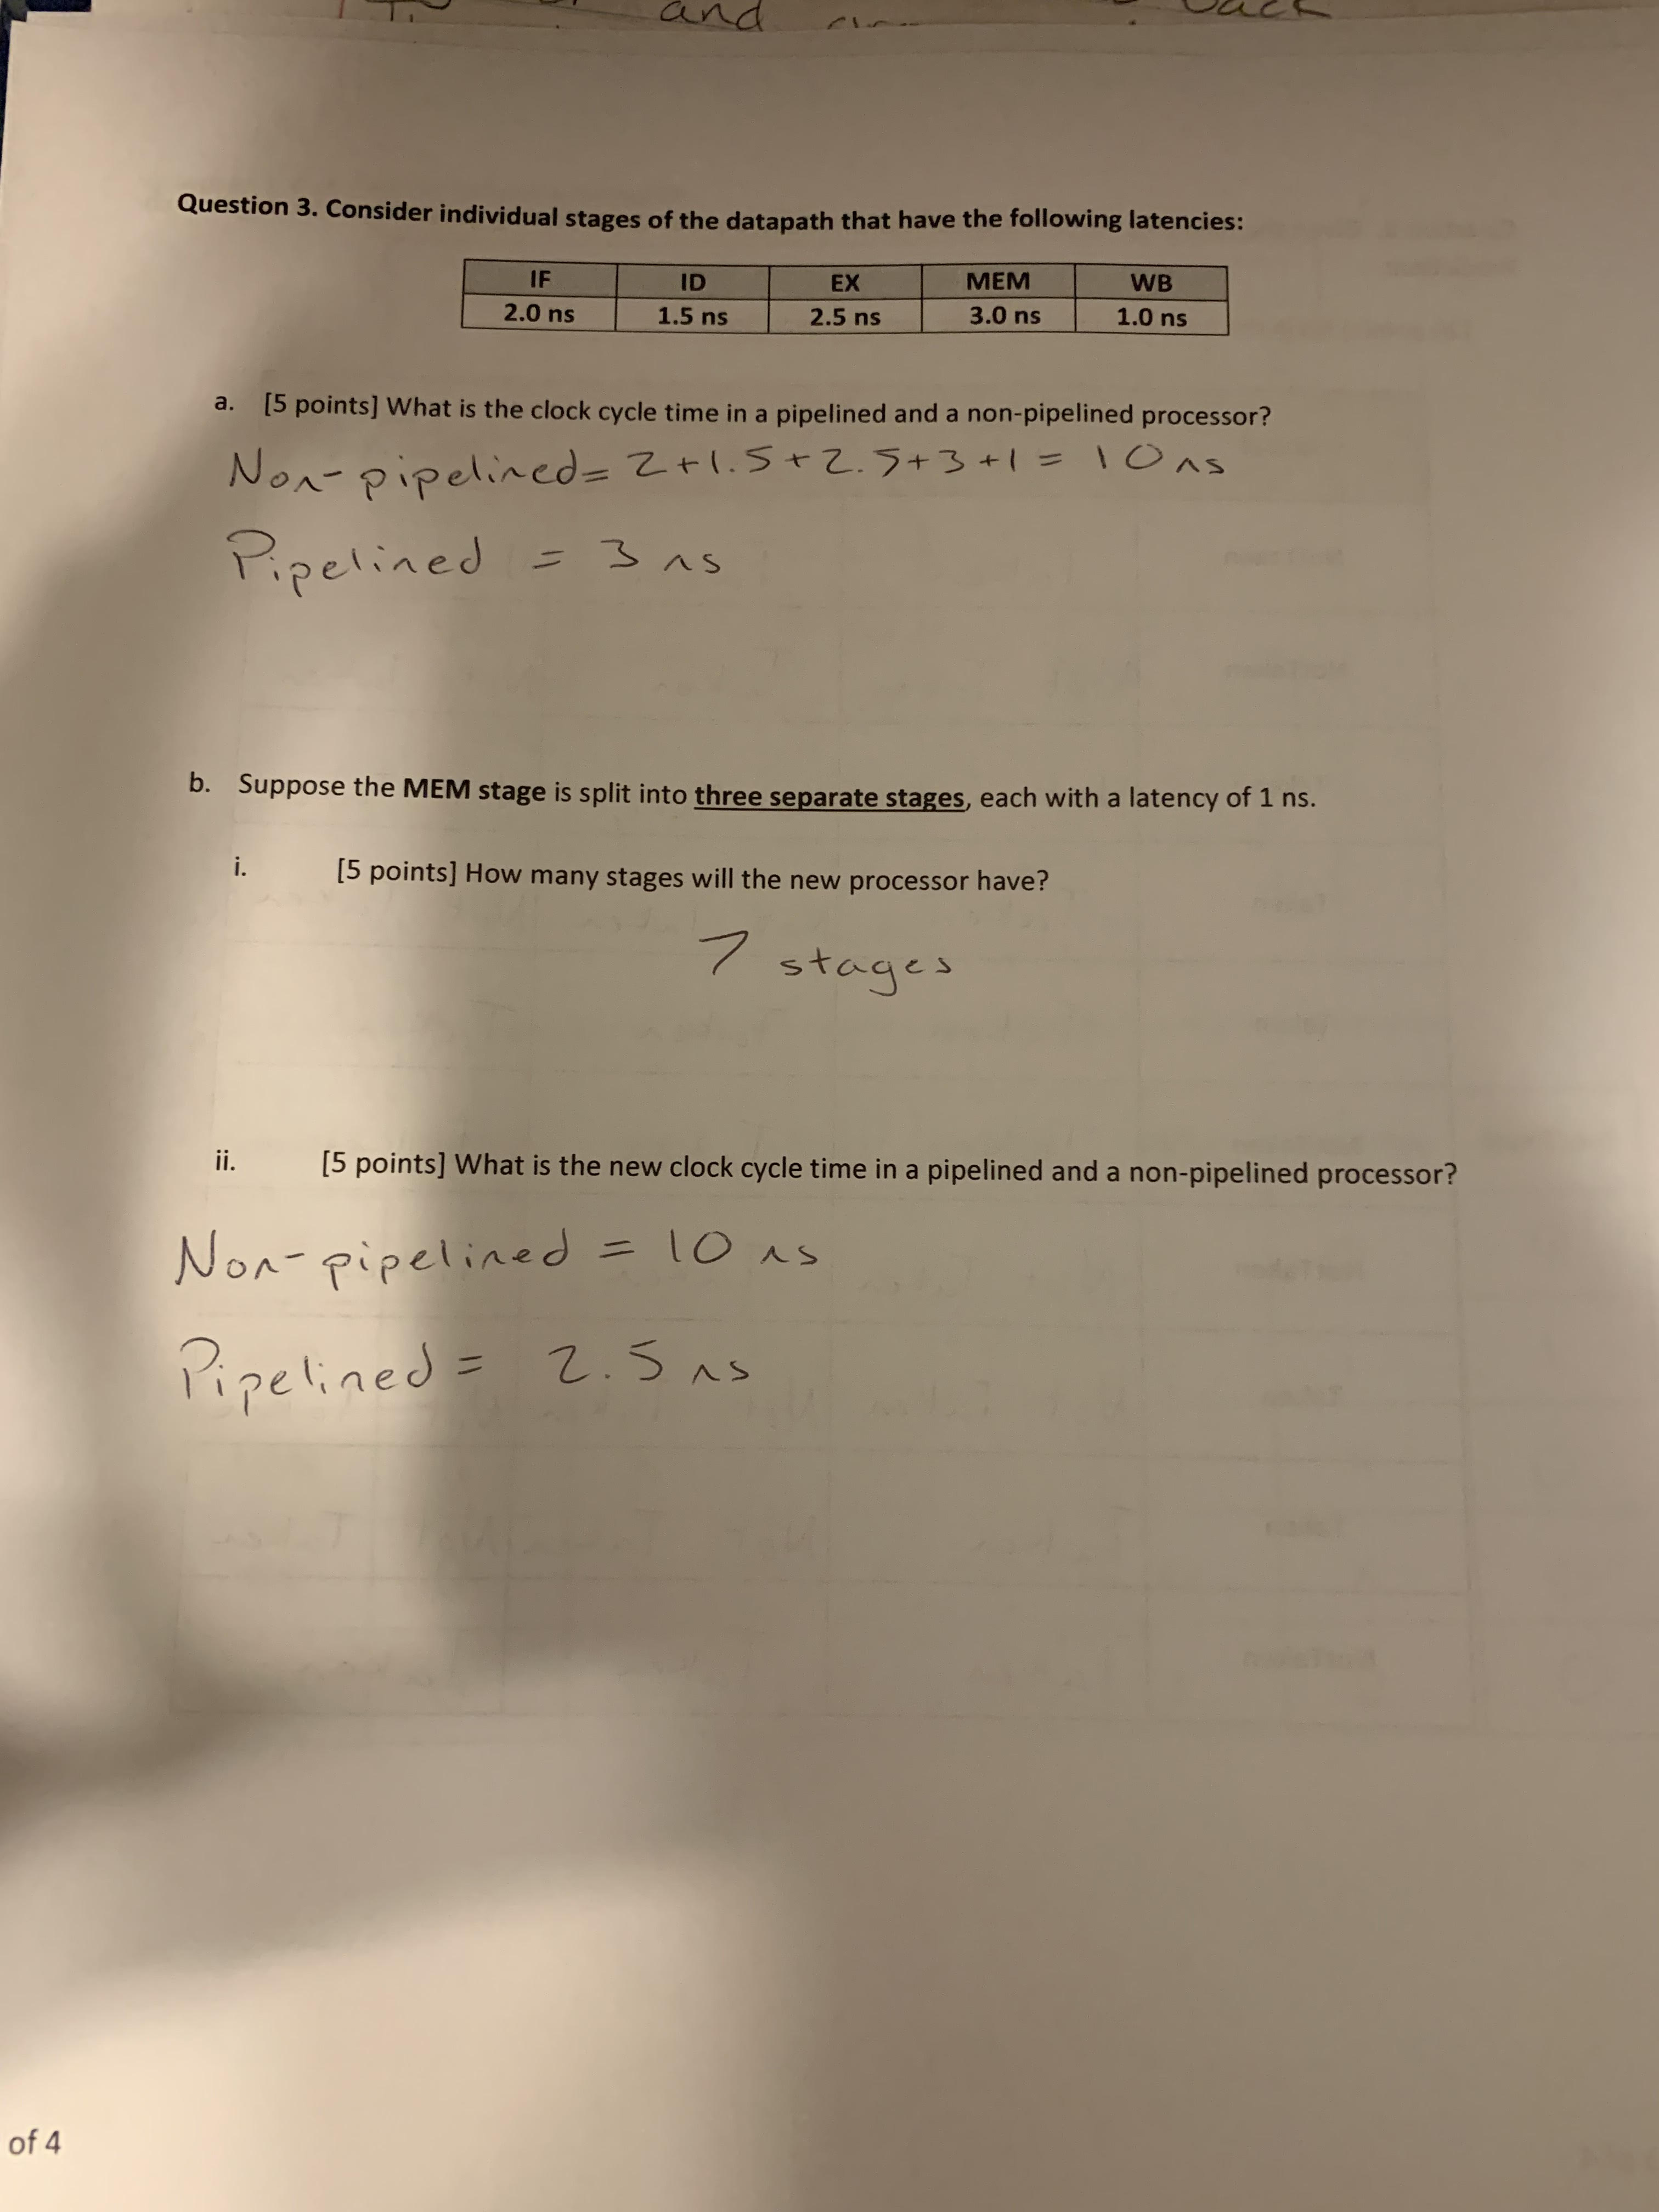 and
back
Question 3. Consider individual stages of the datapath that have the following latencies:
IF ID EX MEM WB
2.0 ns 1.5 ns 2.5 ns 3.0 ns 1.0 ns
a. [5 points] What is the clock cycle time in a pipelined and a non-pipelined processor?
Non-pipelined = 2+1.5+2.5+3+1 = 10 ns
Pipelined = 3 ns
b. Suppose the MEM stage is split into three separate stages, each with a latency of 1 ns.
i. [5 points] How many stages will the new processor have?
7 stages
ii. [5 points] What is the new clock cycle time in a pipelined and a non-pipelined processor?
Non-pipelined = 10 ns
Pipelined = 2.5 ns
of 4